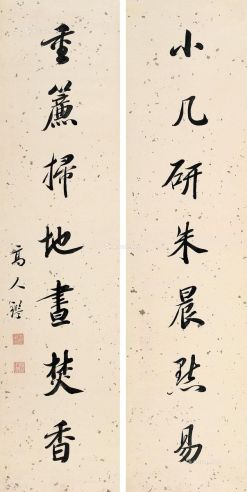 小几研朱晨點易
重簾掃地晝焚香
高人鑑